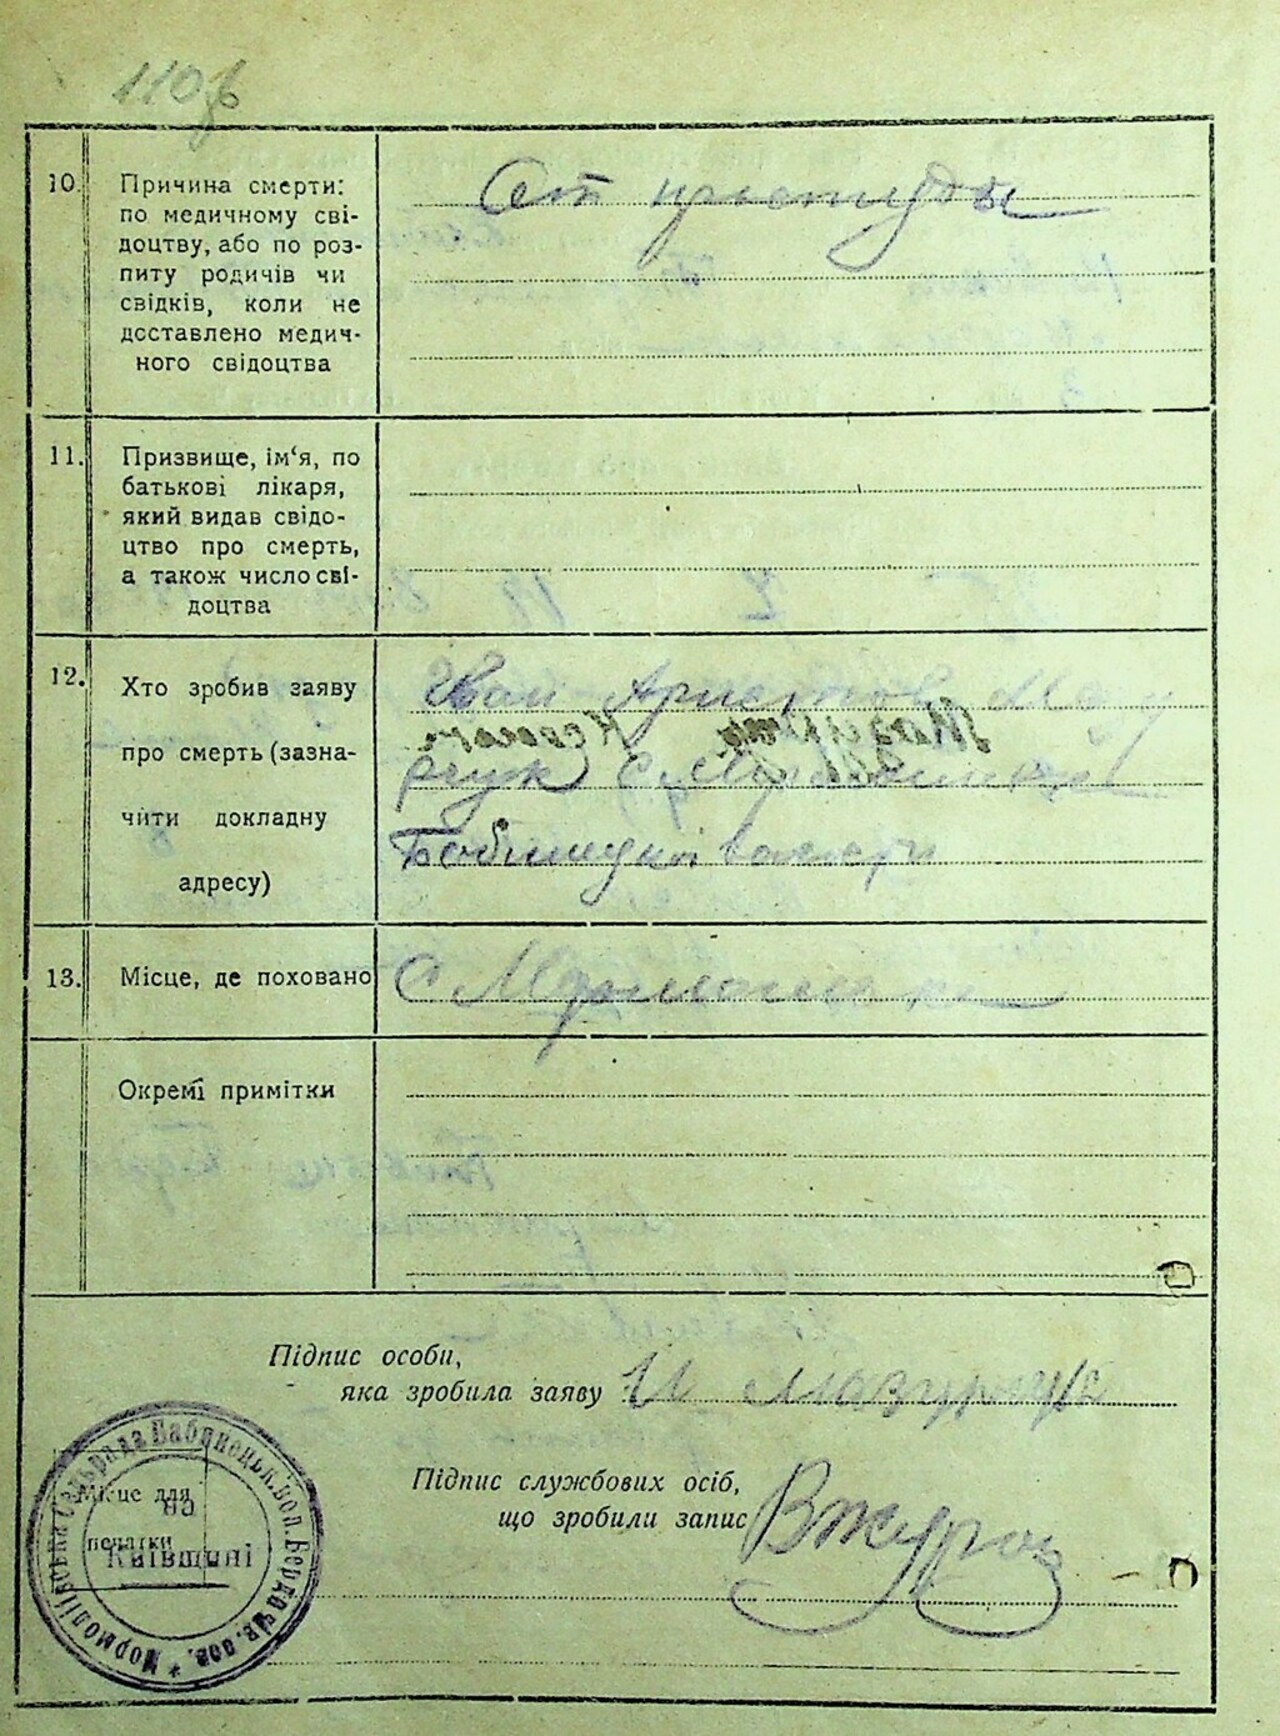 110
10. Причина смерти:
по медичному сві-
доцтву, або по роз-
питу родичів чи
свідків, коли не
доставлено медич-
ного свідоцтва
От простуды
11. Призвище, ім‘я, по
батькові лікаря,
який видав свідо-
цтво про смерть,
а також число сві-
доцтва
12. Хто зробив заяву
про смерть (зазна-
чити докладну
адресу)
Иван Мазу
рчук с.
волости
13. Місце, де поховано
с
Окремі примітки
Підпис особи,
яка зробила заяву И Мазурчук
Підпис службових осіб,
що зробили запис
Місце для
печатки
на
Київщині